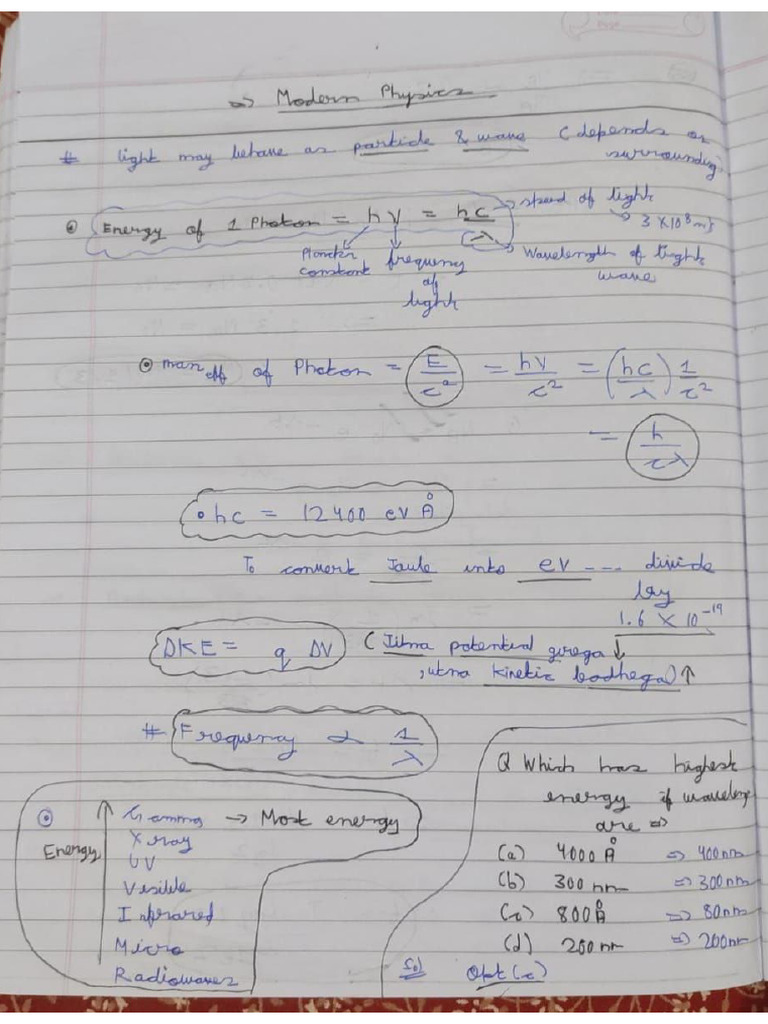 => Modern Physics
# light may behave as particle & wave (depends on
surrounding)
⊙ Energy of 1 Photon = hν = hc/λ
speed of light
→ 3 × 10⁸ m/s
Planck's constant
frequency of light
Wavelength of light wave
⊙ mass eff of Photon = E/c² = hν/c² = (hc/λ) 1/c²
= h/cλ
• hc = 12400 eV Å
To convert Joule into eV --- divide
by
1.6 × 10⁻¹⁹
ΔKE = q ΔV (Jitna potential girega ↓
, utna kinetic badhega) ↑
# Frequency ∝ 1/λ
⊙ Energy ↑
Gamma → Most energy
X ray
UV
Visible
Infrared
Micro
Radiowaves
Q Which has highest
energy if wavelength
are =>
(a) 4000 Å => 400nm
(b) 300 nm => 300nm
(c) 800 Å => 80nm
(d) 200 nm => 200nm
Sol Opt (c)